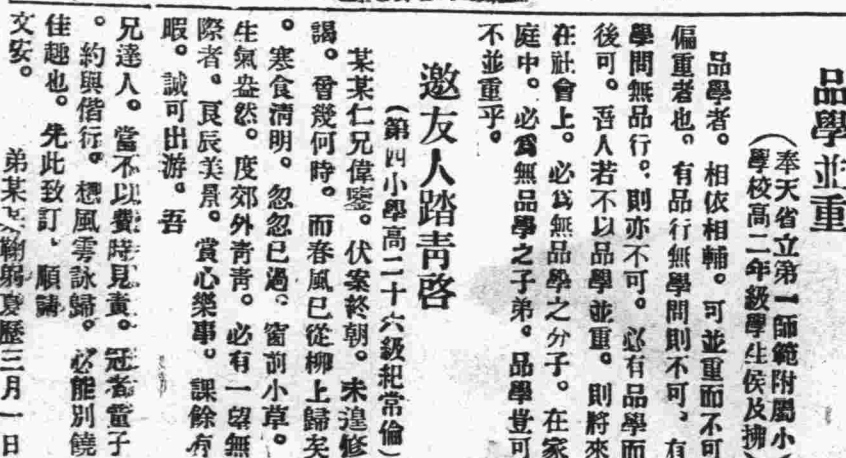 品學並重
（奉天省立第一師範附屬小
學校高二年級學生侯及拂）
品學者。相依相輔。可並重而不可
偏重者也。有品行無學問則不可。有
學問無品行。則亦不可。必有品學而
後可。吾人若不以品學並重。則將來
在社會上。必爲無品學之分子。在家
庭中。必爲無品學之子弟。品學豈可
不並重乎。
邀友人踏靑啓
（第四小學高二十六級紀常倫）
某某仁兄偉鑒。伏案終朝。未遑修
謁。曾幾何時。而春風已從柳上歸矣
。寒食淸明。忽忽已過。窗前小草。
生氣盎然。度郊外靑靑。必有一望無
際者。良辰美景。賞心樂事。課餘有
暇。誠可出游。吾
兄達人。當不以費時見責。冠者童子
。約與偕行。想風雩詠歸。必能別饒
佳趣也。先此致訂。順請
文安。
弟某某鞠躬夏歷三月一日